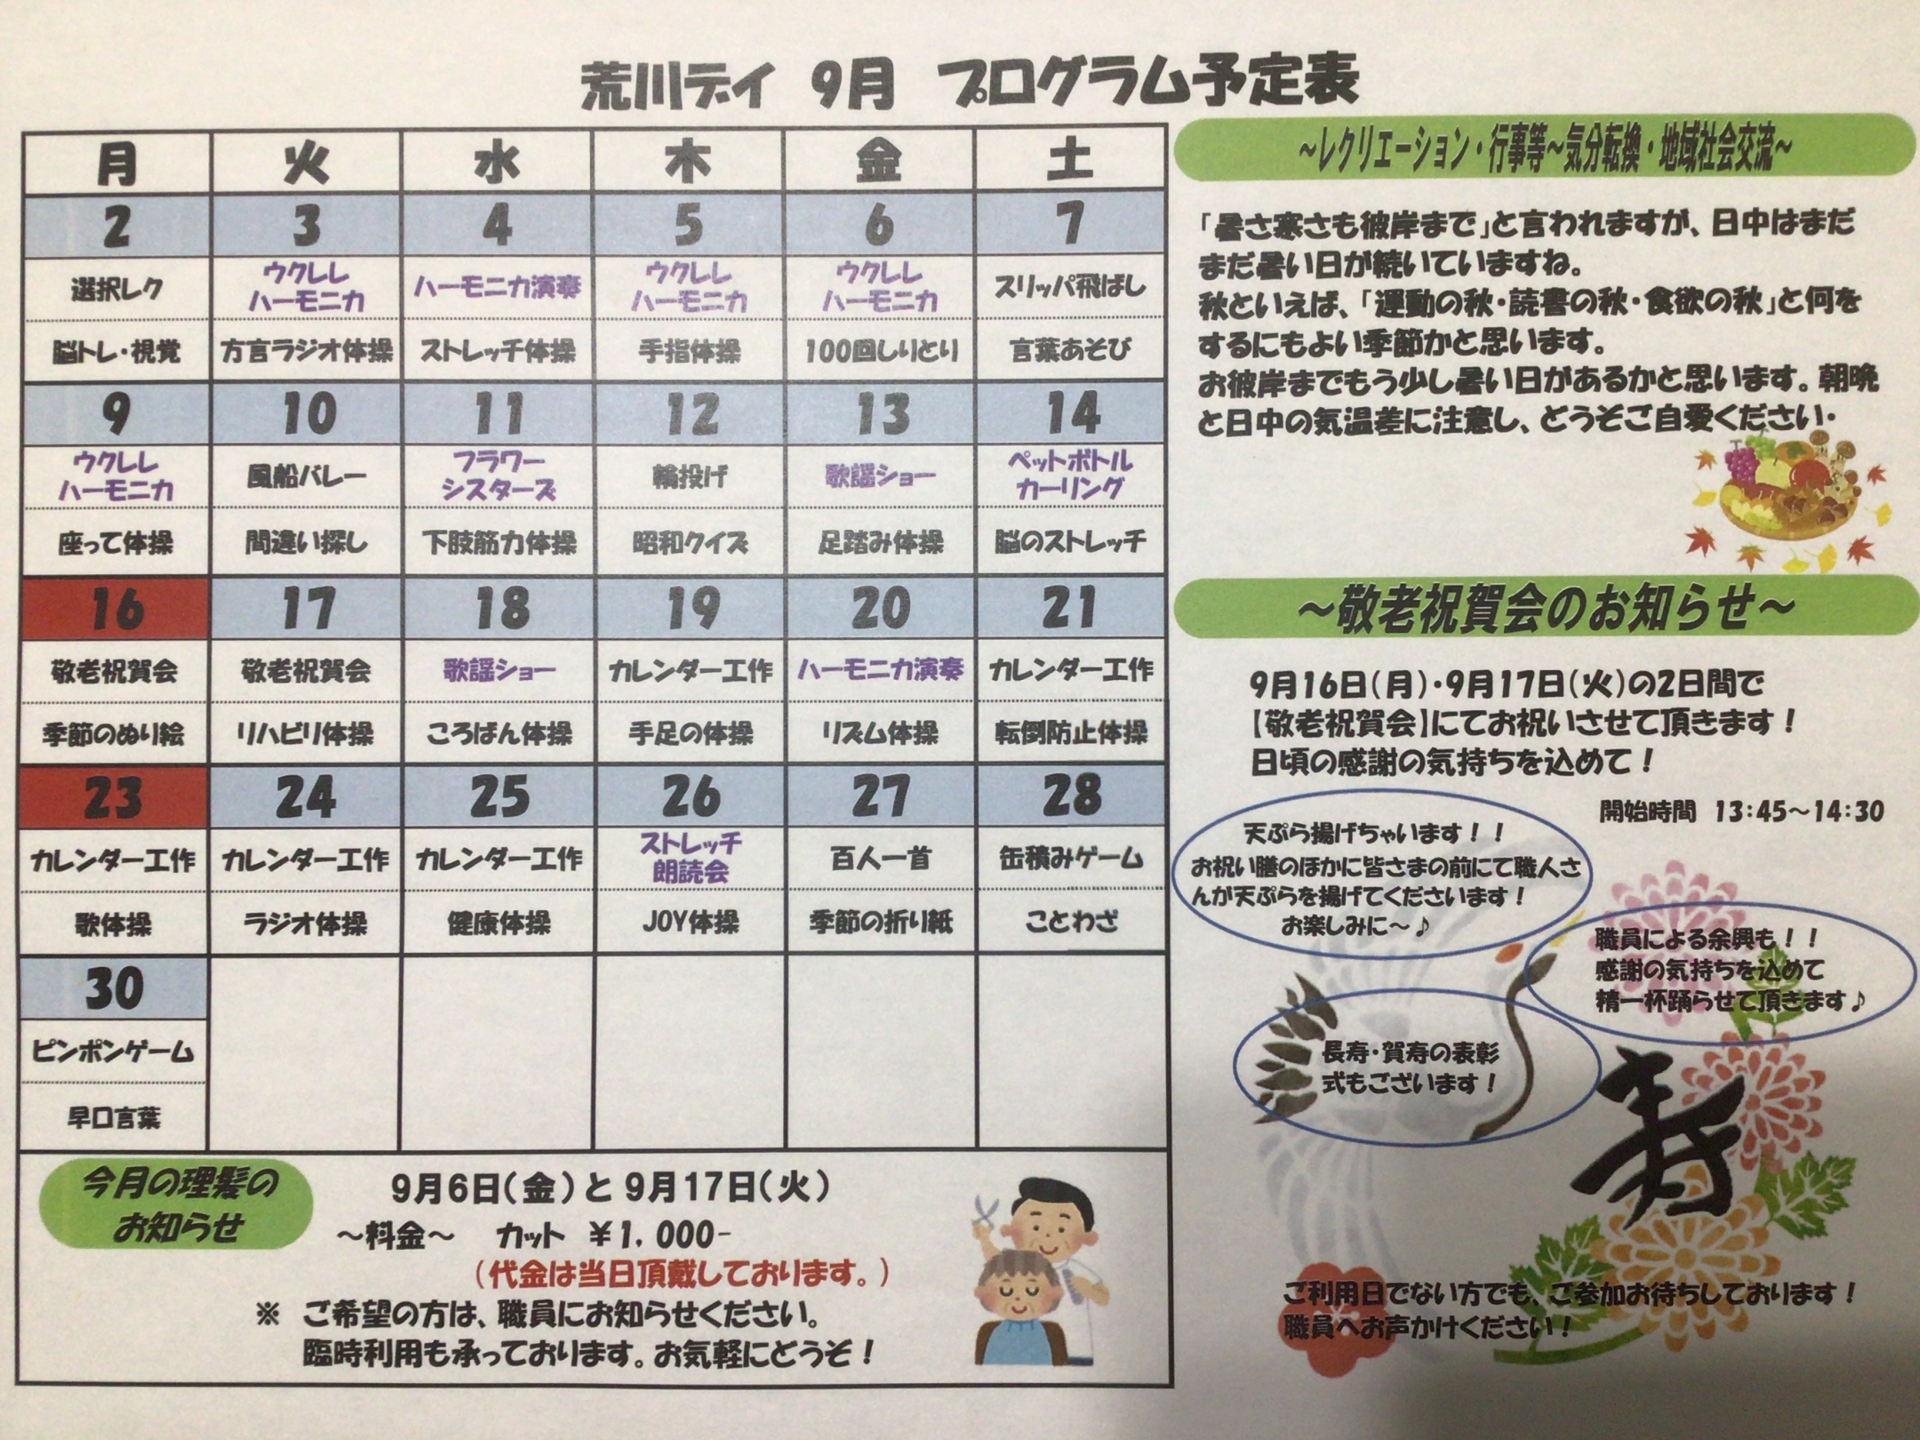 荒川デイ 9月 プログラム予定表
月 火 水 木 金 土
2 3 4 5 6 7
選択レク ウクレレ ハーモニカ ハーモニカ演奏 ウクレレ ハーモニカ ウクレレ ハーモニカ スリッパ飛ばし
脳トレ・視覚 方言ラジオ体操 ストレッチ体操 手指体操 100回しりとり 言葉あそび
9 10 11 12 13 14
ウクレレ ハーモニカ 風船バレー フラワー シスターズ 輪投げ 歌謡ショー ペットボトル カーリング
座って体操 間違い探し 下肢筋力体操 昭和クイズ 足踏み体操 脳のストレッチ
16 17 18 19 20 21
敬老祝賀会 敬老祝賀会 歌謡ショー カレンダー工作 ハーモニカ演奏 カレンダー工作
季節のぬり絵 リハビリ体操 ころばん体操 手足の体操 リズム体操 転倒防止体操
23 24 25 26 27 28
カレンダー工作 カレンダー工作 カレンダー工作 ストレッチ 朗読会 百人一首 缶積みゲーム
歌体操 ラジオ体操 健康体操 JOY体操 季節の折り紙 ことわざ
30
ピンポンゲーム
早口言葉
今月の理髪の
お知らせ
9月6日(金)と9月17日(火)
~料金~ カット ¥1,000-
(代金は当日頂戴しております。)
※ ご希望の方は、職員にお知らせください。
臨時利用も承っております。お気軽にどうぞ!
~レクリエーション・行事等~気分転換・地域社会交流~
「暑さ寒さも彼岸まで」と言われますが、日中はまだ
まだ暑い日が続いていますね。
秋といえば、「運動の秋・読書の秋・食欲の秋」と何を
するにもよい季節かと思います。
お彼岸までもう少し暑い日があるかと思います。朝晩
と日中の気温差に注意し、どうぞご自愛ください・
~敬老祝賀会のお知らせ~
9月16日(月)・9月17日(火)の2日間で
【敬老祝賀会】にてお祝いさせて頂きます!
日頃の感謝の気持ちを込めて!
開始時間 13:45~14:30
天ぷら揚げちゃいます!!
お祝い膳のほかに皆さまの前にて職人さ
んが天ぷらを揚げてくださいます!
お楽しみに~♪
職員による余興も!!
感謝の気持ちを込めて
精一杯踊らせて頂きます♪
長寿・賀寿の表彰
式もございます!
寿
ご利用日でない方でも、ご参加お待ちしております!
職員へお声かけください!